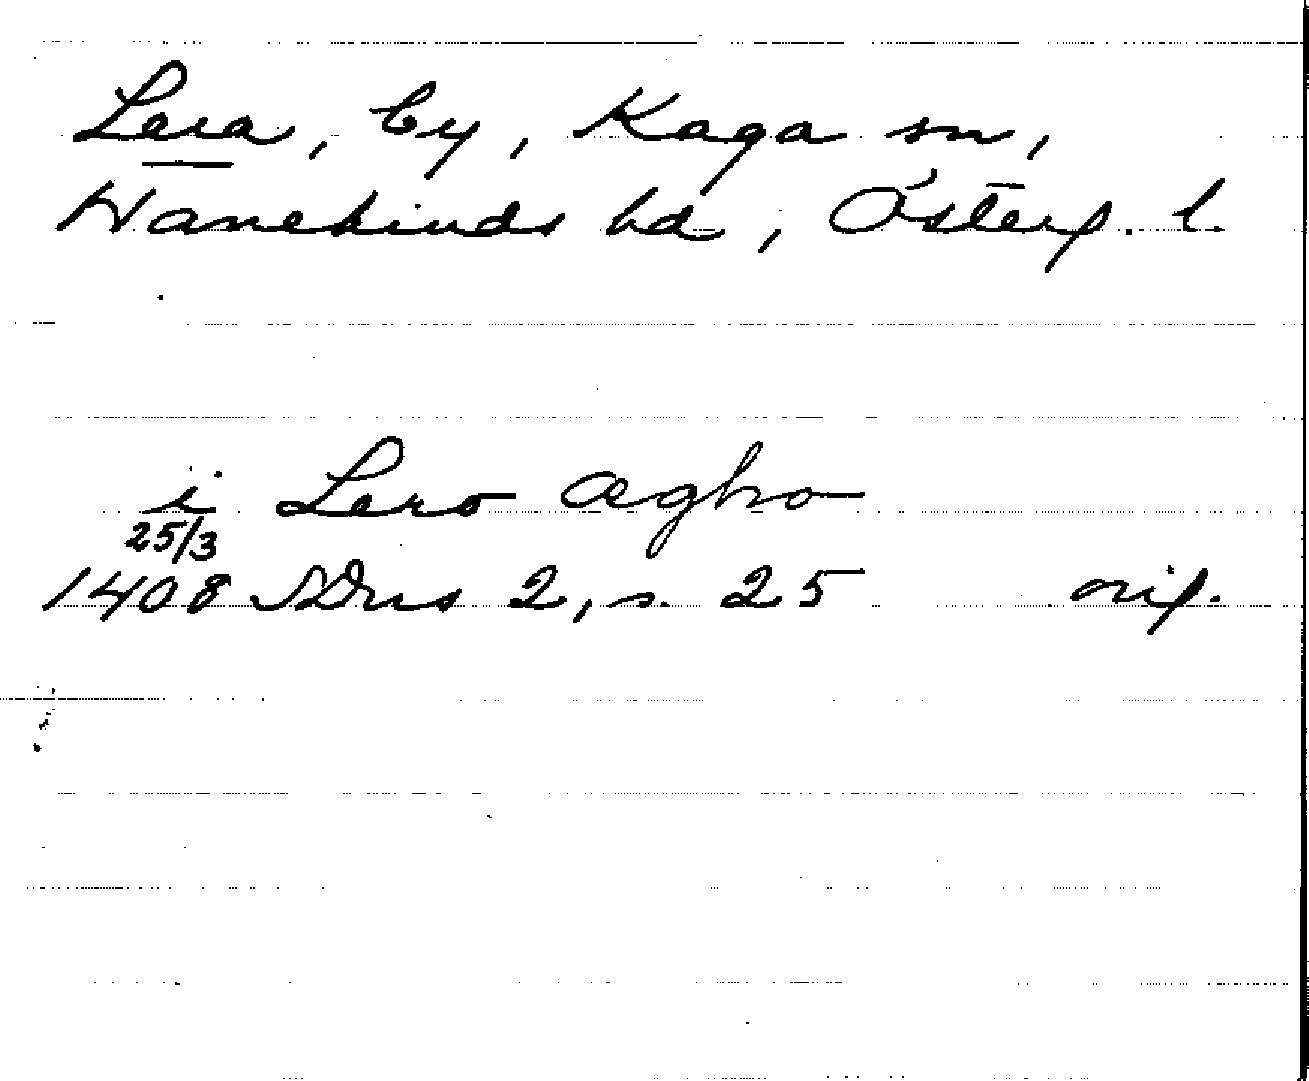 Lera, by, Kaga sn,
Hanekinds hd, Österg. l.
i Lero ægho
25/3
1408 SDns 2, s. 25 orig.